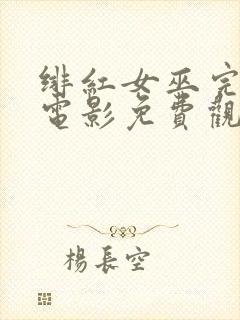 緋紅女巫完
電影免費觀
楊長空